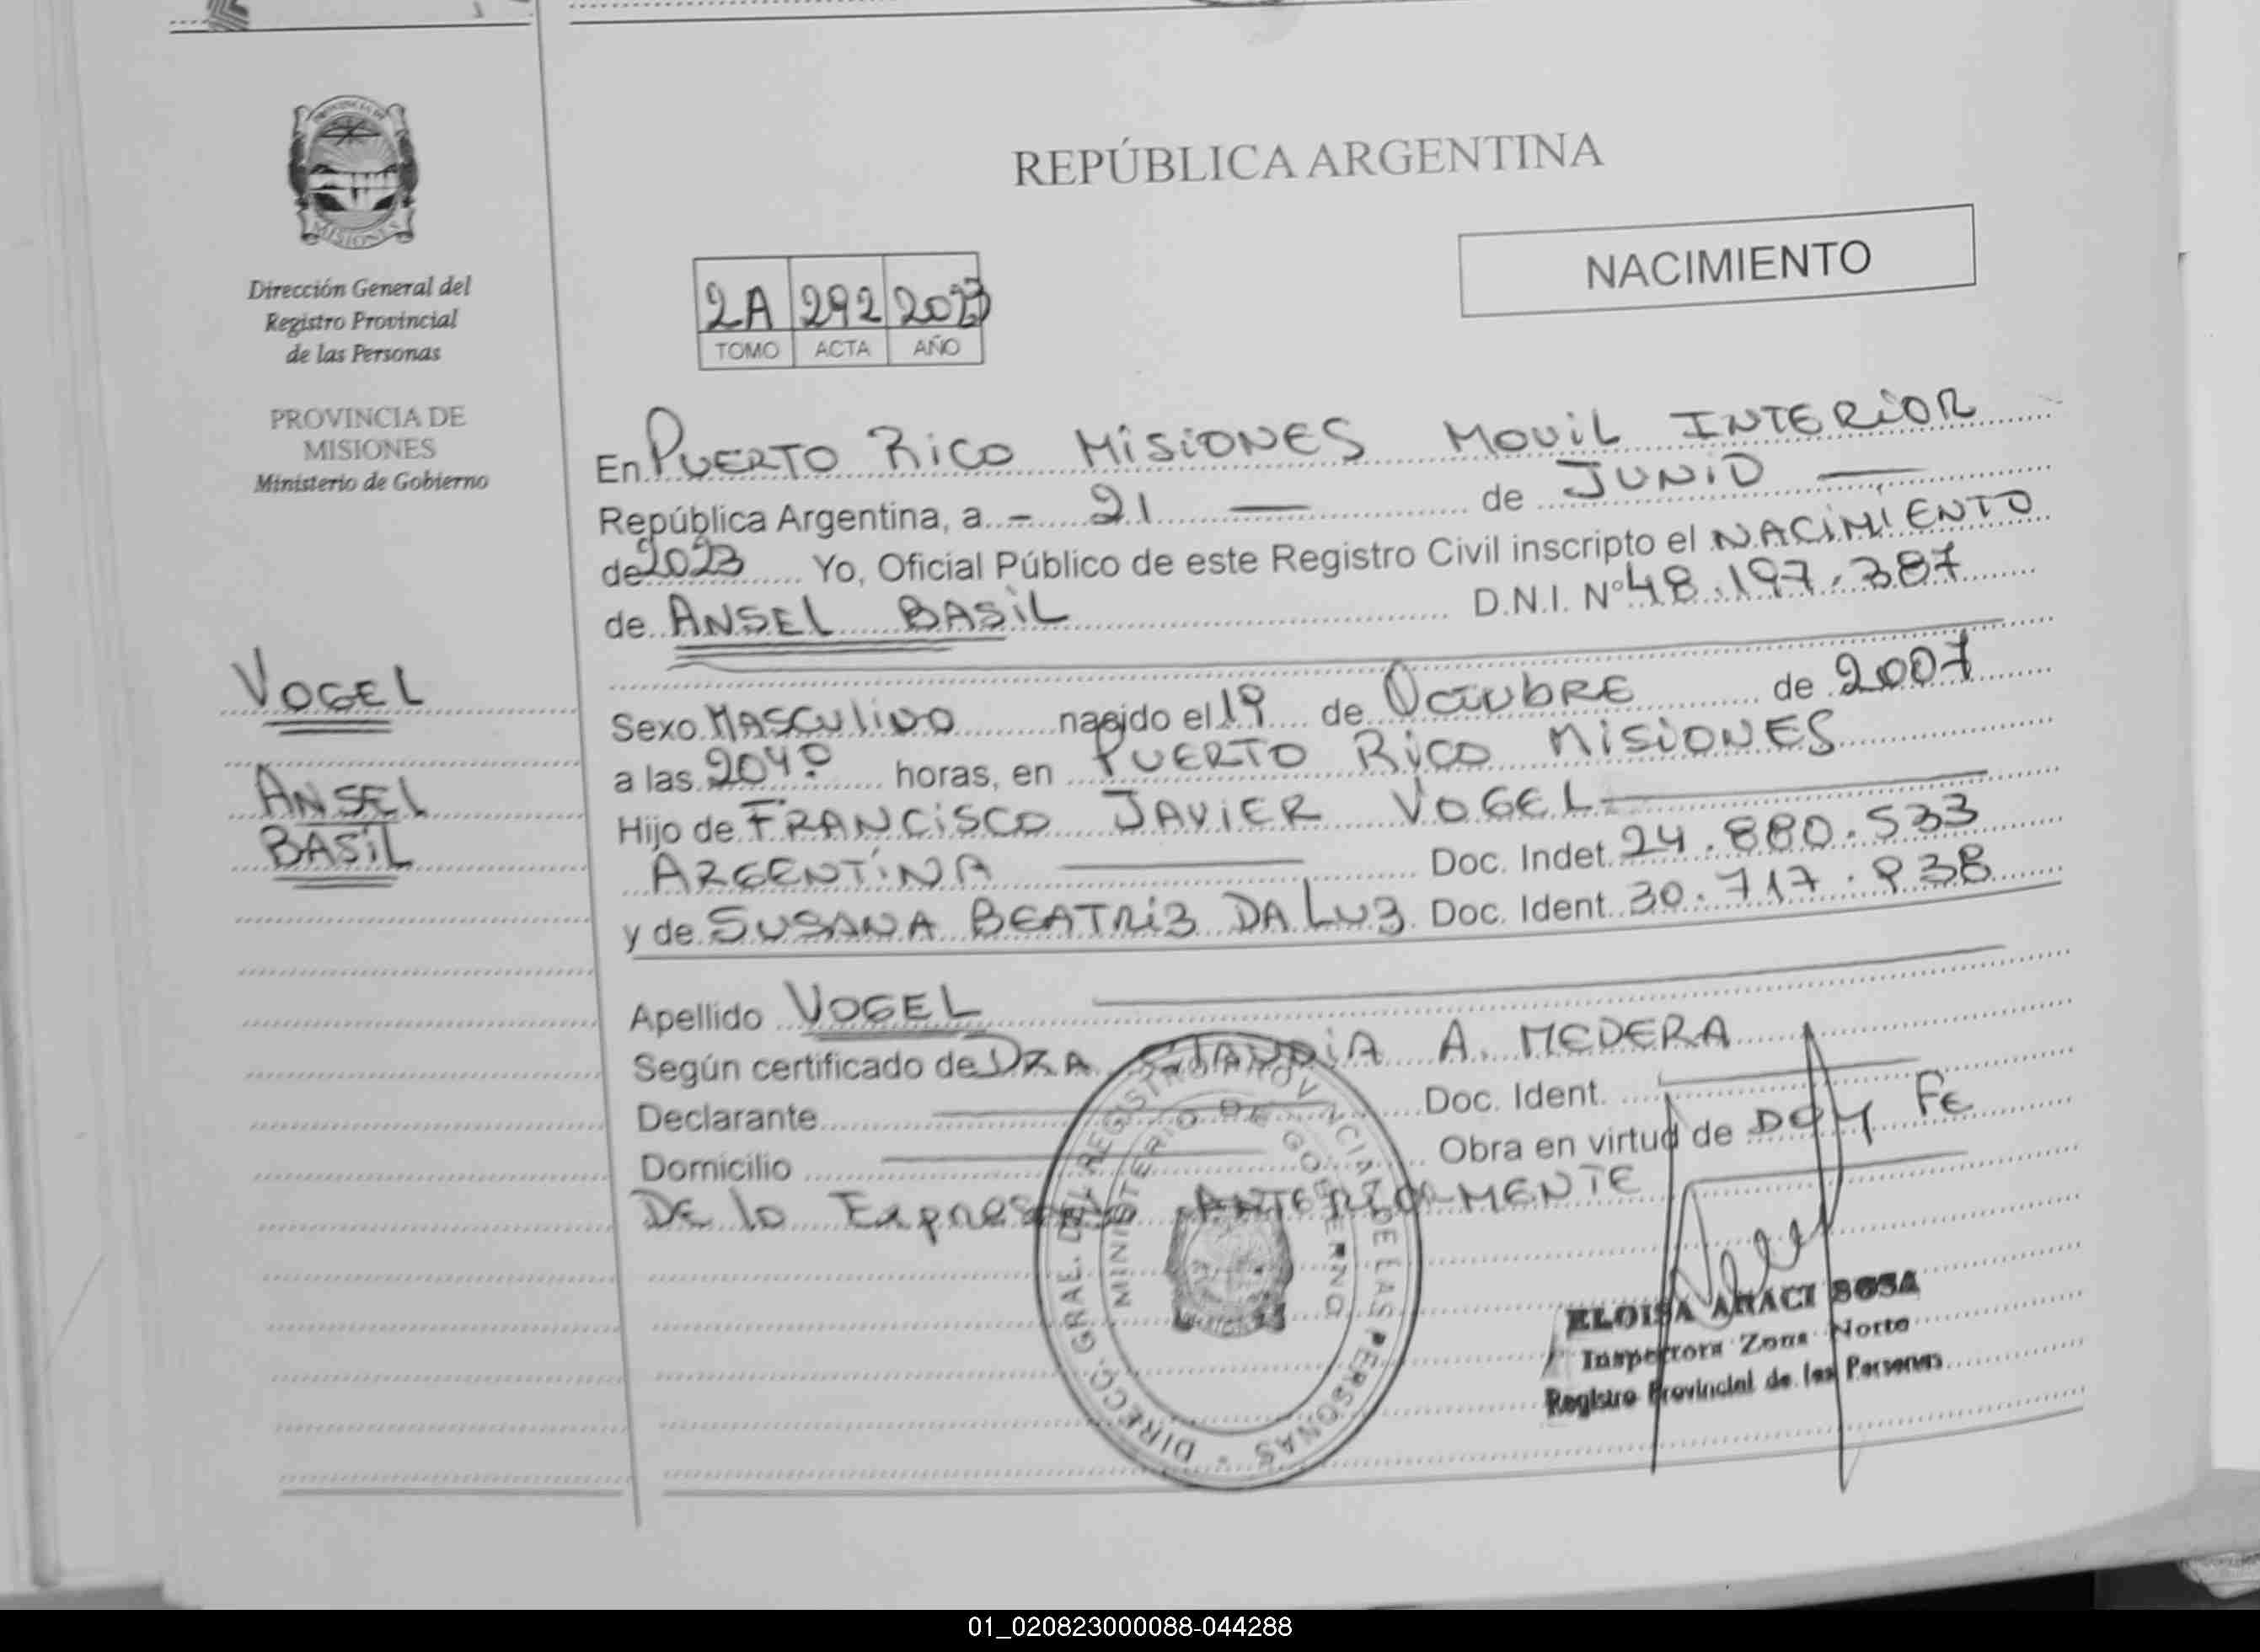 PROVINCIA DE
MISIONES
Dirección General del
Registro Provincial
de las Personas
PROVINCIA DE
MISIONES
Ministerio de Gobierno
VOGEL
ANSEL
BASIL
REPÚBLICA ARGENTINA
NACIMIENTO
2A 292 2023
TOMO ACTA AÑO
En PUERTO RICO MISIONES MOVIL INTERIOR
República Argentina, a - 21 — de JUNIO —
de 2023 Yo, Oficial Público de este Registro Civil inscripto el NACIMIENTO
de ANSEL BASIL D.N.I. Nº 48.197.387
Sexo MASCULINO nacido el 19 de OCTUBRE de 2007
a las 2040 horas, en PUERTO RICO MISIONES
Hijo de FRANCISCO JAVIER VOGEL
ARGENTINA Doc. Indet. 24.880.533
y de SUSANA BEATRIZ DA LUZ Doc. Ident. 30.717.838
Apellido VOGEL
Según certificado de DRA CLAUDIA A. MEDERA
Declarante Doc. Ident.
Domicilio Obra en virtud de DOY FE
DE lo Expresado ANTERIORMENTE
DIRECC. GRAL. DEL REGISTRO PROVINCIAL DE LAS PERSONAS
MINISTERIO DE GOBIERNO
ELOISA ARACI SOSA
Inspectora Zona Norte
Registro Provincial de las Personas
01_020823000088-044288